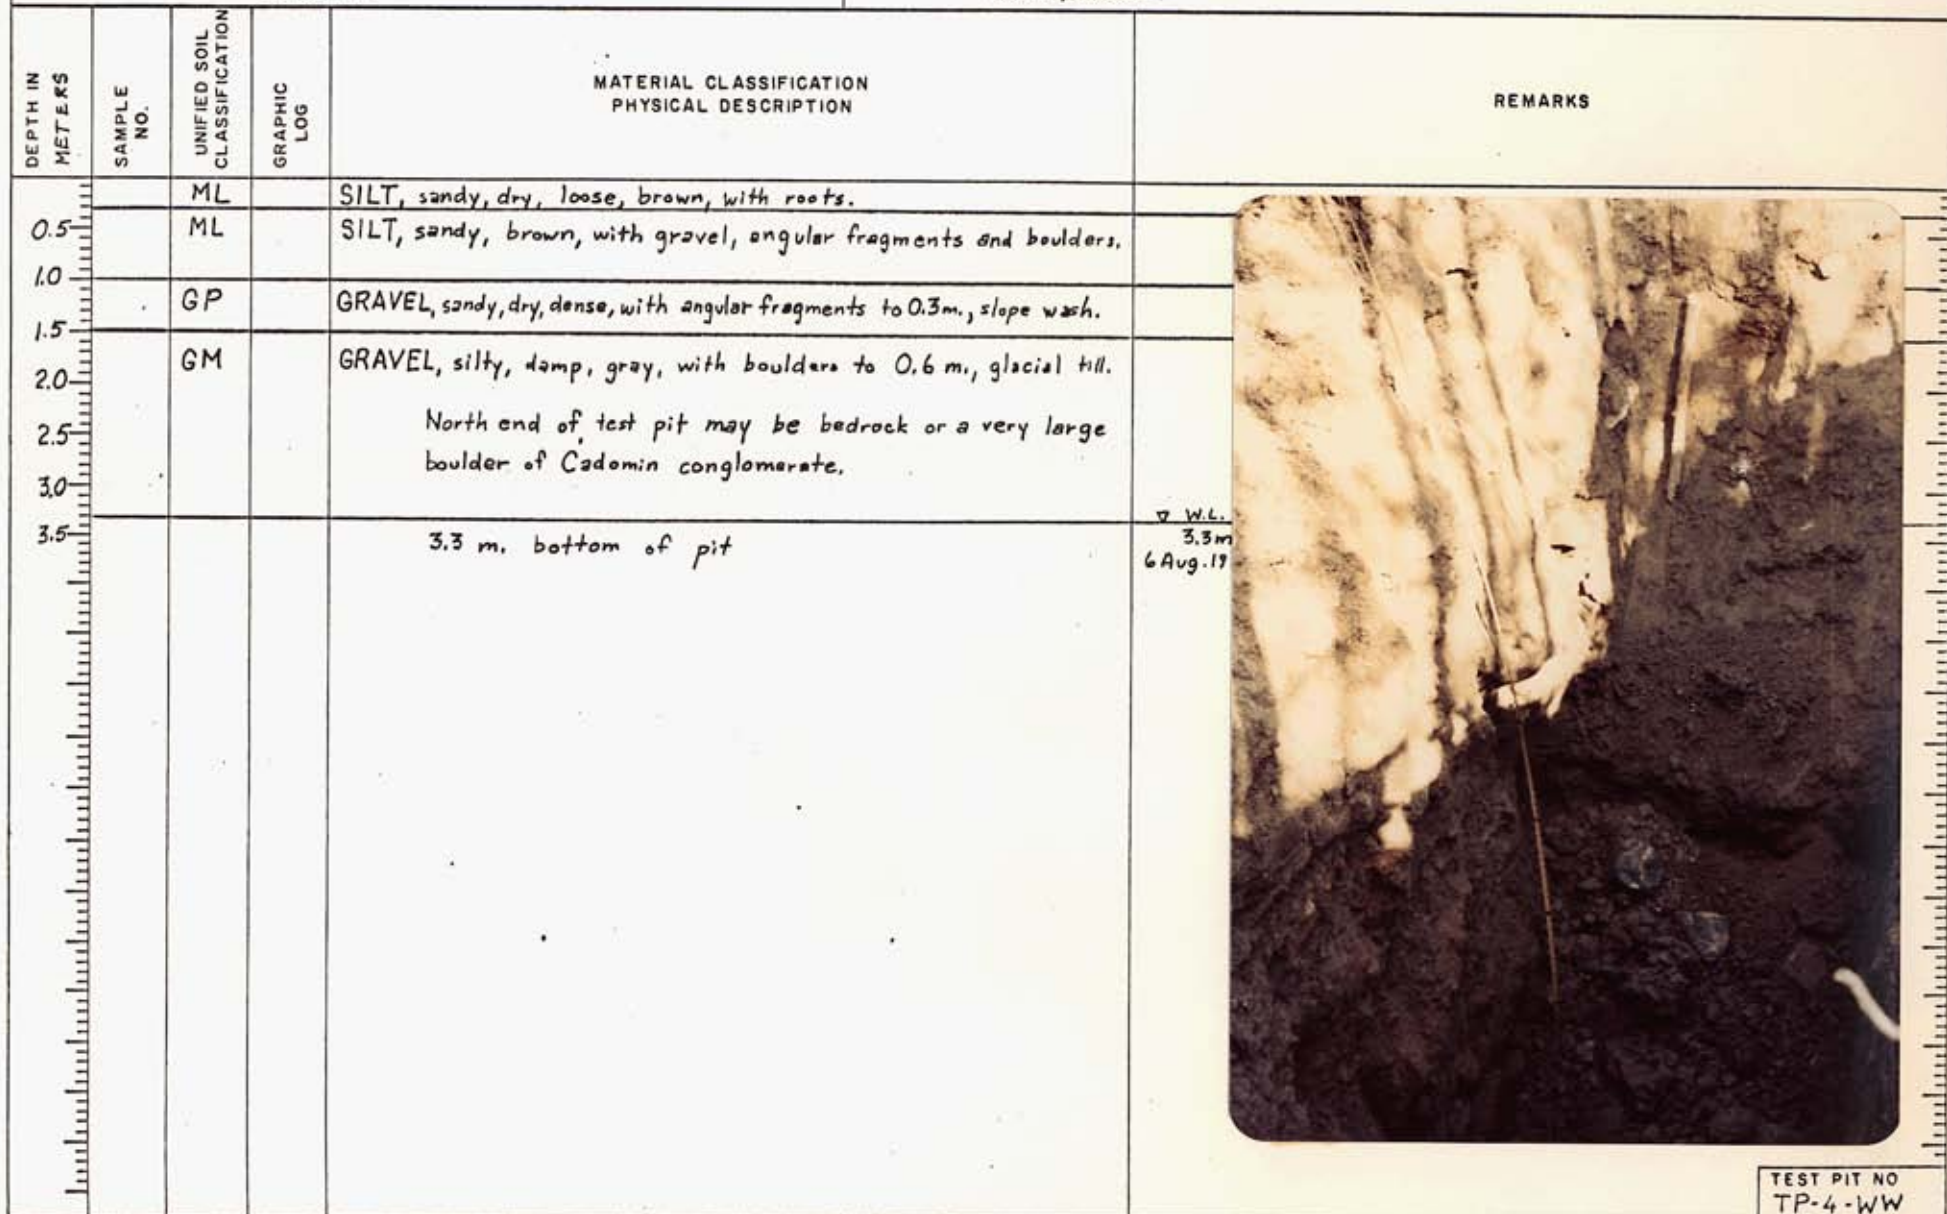 DEPTH IN
METERS
SAMPLE
NO.
UNIFIED SOIL
CLASSIFICATION
GRAPHIC
LOG
MATERIAL CLASSIFICATION
PHYSICAL DESCRIPTION
REMARKS
ML
SILT, sandy, dry, loose, brown, with roots.
0.5
ML
SILT, sandy, brown, with gravel, angular fragments and boulders.
1.0
GP
GRAVEL, sandy, dry, dense, with angular fragments to 0.3m., slope wash.
1.5
GM
GRAVEL, silty, damp, gray, with boulders to 0.6 m., glacial till.
2.0
North end of test pit may be bedrock or a very large
2.5
boulder of Cadomin conglomerate.
3.0
3.5
3.3 m. bottom of pit
▽ W.L.
3.3m
6 Aug. 19
TEST PIT NO
TP-4-WW